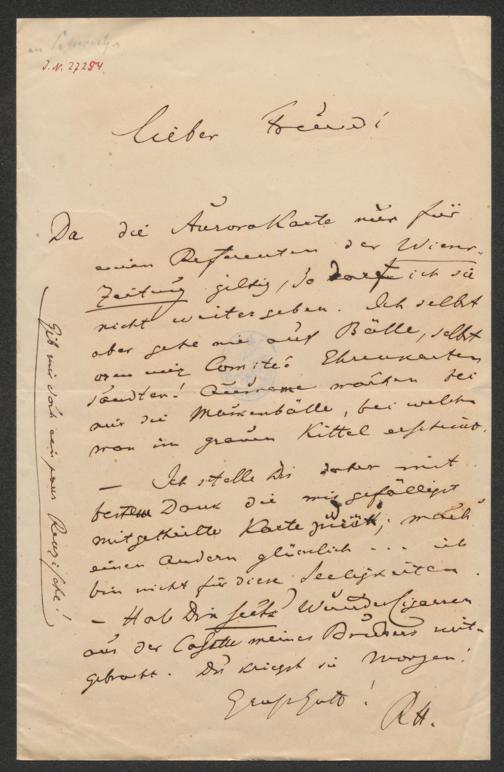 I.N. 27284
Lieber Freund!
Da die Aurorakarte nur für
einen Referenten der Wiener-
Zeitung giltig, so darf ich sie
nicht weitergeben. Ich selbst
aber gehe nie auf Bälle, selbst
wenn mir Comité's Ehrenkarten
sandten! Ausname machen bei
mir die Maskenbälle, bei welchen
man im grauen Kittel erscheint.
– Ich stelle Dir daher mit
bestem Dank die mir gefälligst
mitgetheilte Karte zurück; mach'
einen Andern glücklich ... ich
bin nicht für diese Seeligkeiten.
– Hab Dir sechs Wundercigarren
aus der Casette meines Bruders mit-
gebracht. Du kriegst sie Morgen!
Grüß Gott!
RH.
Gib mir doch ein paar